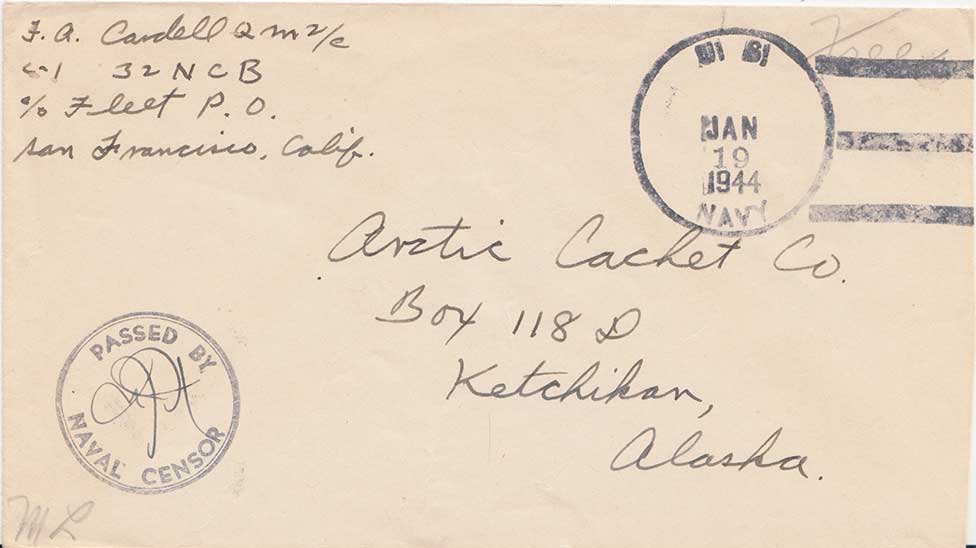 F. A. Cardell QM2/c
C-1 32 NCB
c/o Fleet P. O.
San Francisco, Calif.
Free
JAN
19
1944
NAVY
Arctic Cachet Co.
Box 118 D
Ketchikan,
Alaska.
PASSED BY
NAVAL CENSOR
ML